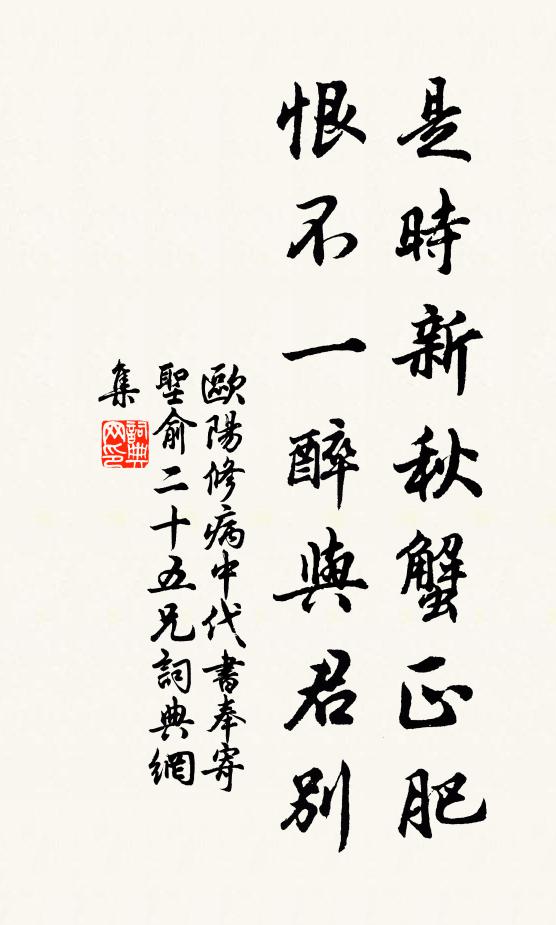 是時新秋蟹正肥
恨不一醉與君別
歐陽修病中代書奉寄
聖俞二十五兄詞典網
集
詞典
网印